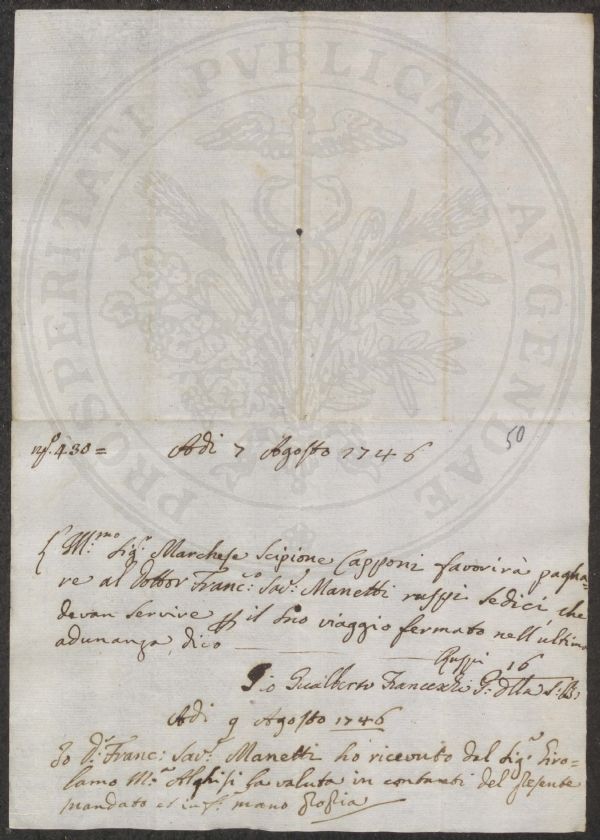 PROSPERITATI PVBLICAE AVGENDAE
nº. 430 =
Adi 7 Agosto 1746
50
L'Ill.mo Sig.r Marchese Scipione Capponi favorirà pagha=
re al Dottor Franc.o Sav.o Manetti ruspi sedici, che
devon servire p il suo viaggio fermato nell'ultima
adunanza, dico
Ruspi 16
Io Gualberto Franceschi P. della S. B.
Adi 9 Agosto 1746
Io D.r Franc: Sav.o Manetti ho ricevuto dal Sig.r Giro=
lamo M.a Alghisi la valuta in contanti del presente
mandato et in f. mano propria